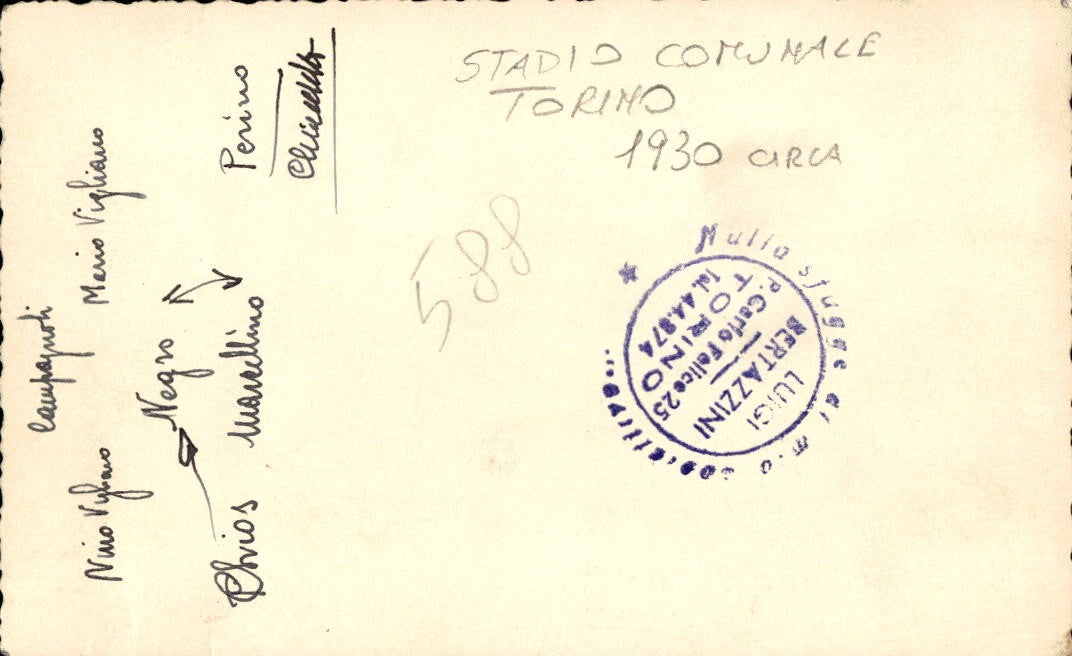 STADIO COMUNALE
TORINO
1930 CIRCA
588
Nulla sfugge al mio obiettivo...
LUIGI
BERTAZZINI
P. Carlo Felice 25
TORINO
Tel. 44.974
Campagnoli
Nino Vigliano Mario Vigliano
Negro
Marcellino
Perino